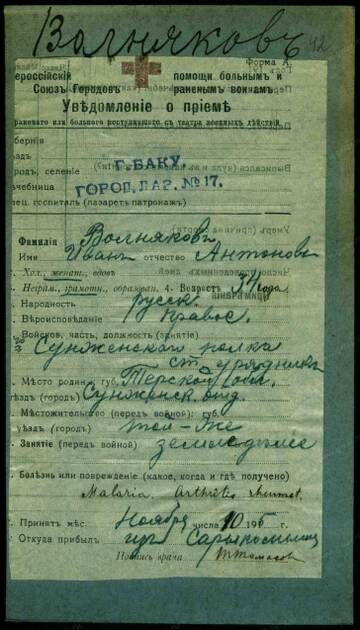 Волняковъ 42
Форма А.
ероссійскій помощи больнымъ и
Союзъ Городовъ раненымъ воинамъ
Увѣдомленіе о пріемѣ
раненаго или больного поступившаго съ театра военныхъ дѣйствій
бернія
Г. БАКУ.
родъ, селеніе
ГОРОД. ЛАЗ. № 17.
чебница
ец. госпиталь (лазаретъ патронажъ)
Фамилія Волняковъ
Имя Иванъ отчество Антоновъ
Хол., женат., вдовъ
Неграм., грамотн., образован. 4. Возрастъ 34 года
Народность русск.
Вѣроисповѣданіе Правос.
Войсков. часть, должность (занятіе)
Сунженскаго полка
ст. урядникъ
Мѣсто родины: губ. Терской обл.
ѣздъ (городъ) Сунженск. отд.
Мѣстожительство (передъ войной): губ.
уѣздъ (городъ) той-же
Занятіе (передъ войной) земледѣліе
Болѣзнь или поврежденіе (какое, когда и гдѣ получено)
Malaria. Arthritis rheumat.
Принятъ мѣс. Ноября числа 10 195 г.
Откуда прибылъ изъ
Подпись врача